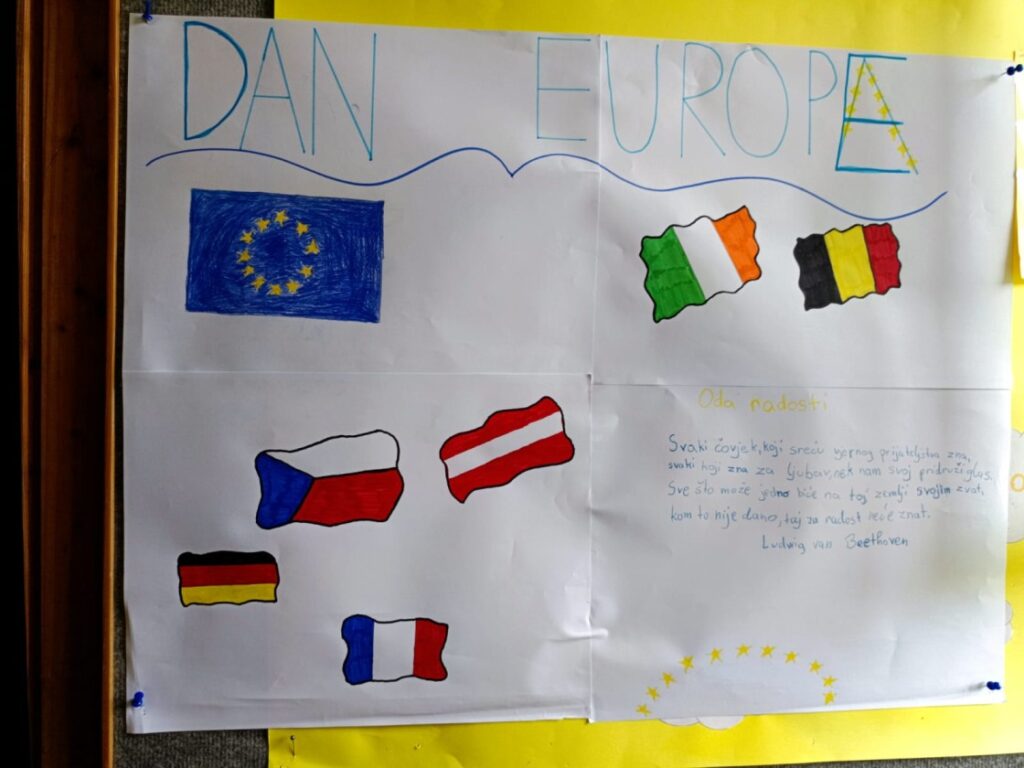 DAN EUROPE
Oda radosti
Svaki čovjek, koji sreću vjernog prijateljstva zna,
svaki koji zna za ljubav, nek nam svoj pridruži glas.
Sve što može jedno biće na toj zemlji svojim zvat,
kom to nije dano, taj za radost neće znat.
Ludwig van Beethoven